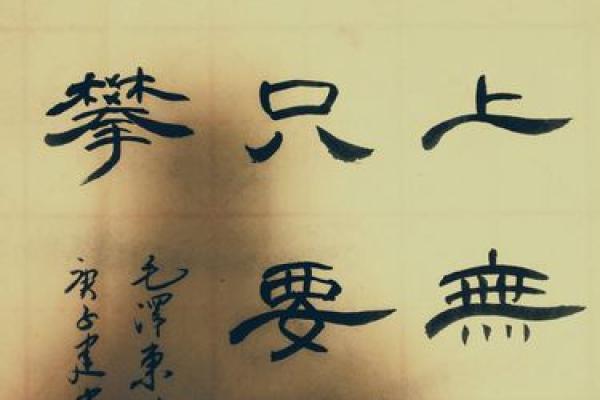 上無
只要
攀
毛澤東
庚子建